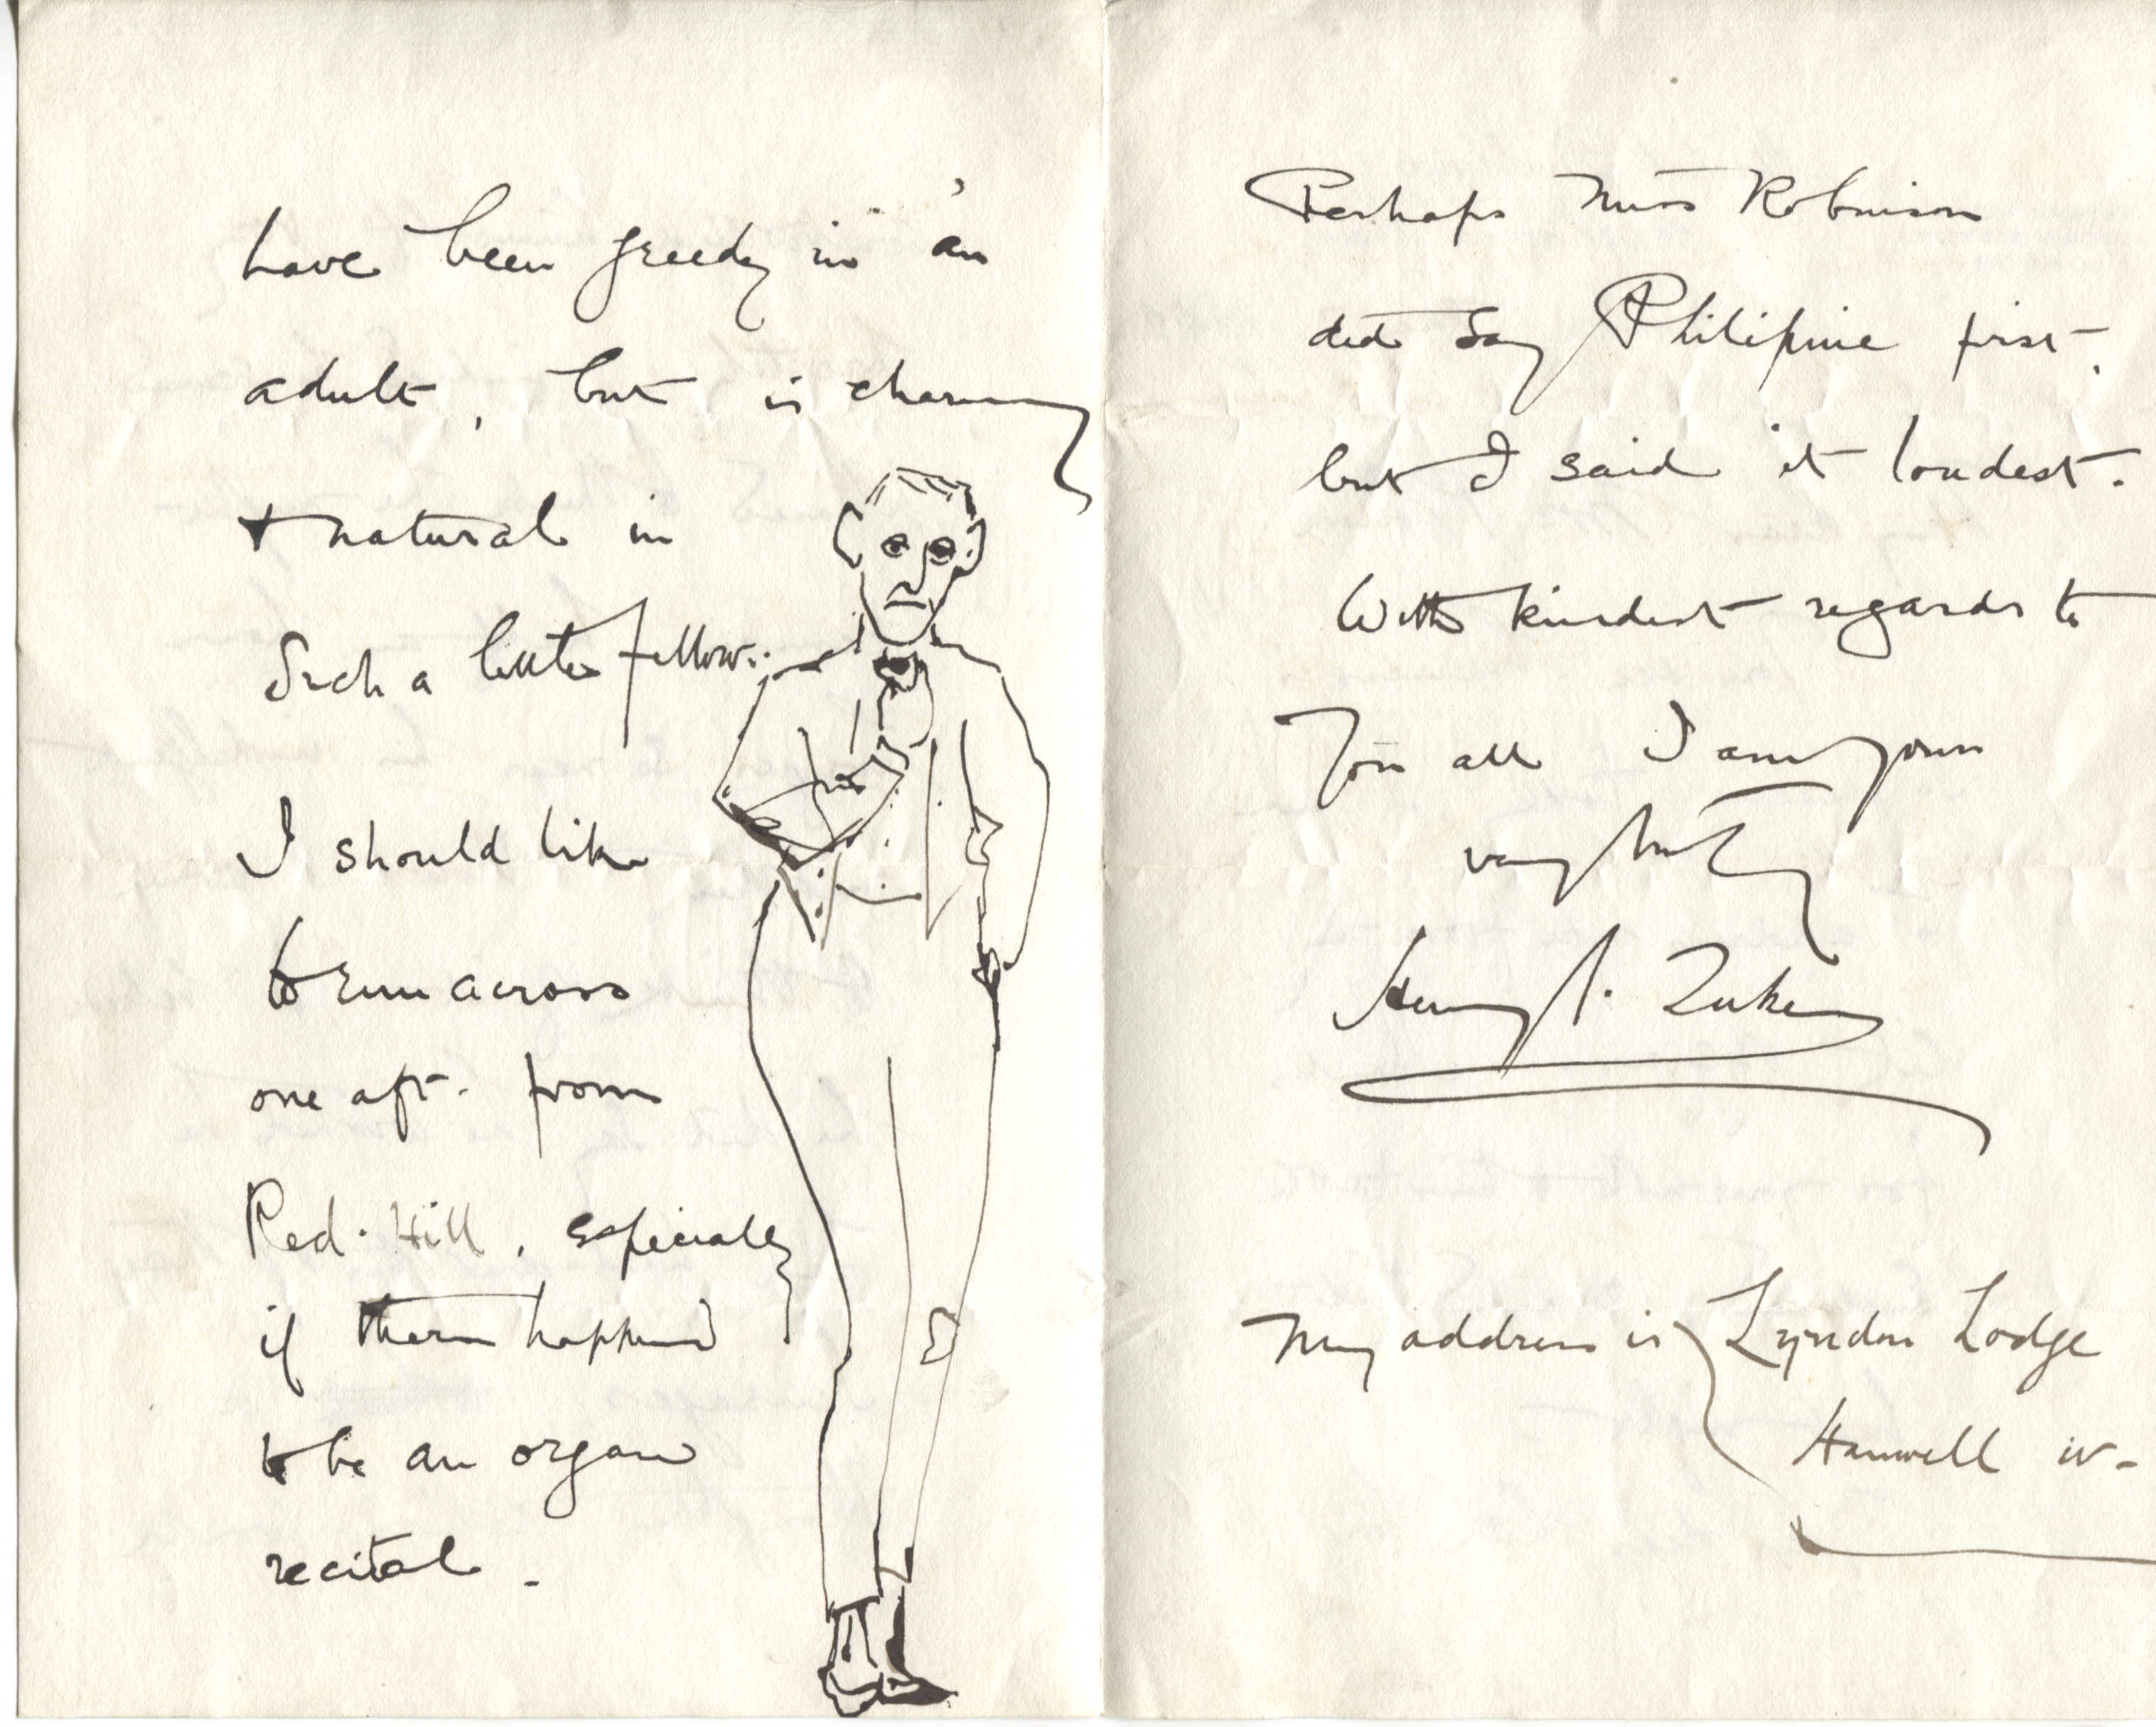 have been greedy in an
adult, but is charming
+ natural in
Such a little fellow.
I should like
to run across
one aft. from
Red-Hill, especially
if there happened
to be an organ
recital.
Perhaps Miss Robinson
did say Philipine first,
but I said it loudest.
With kindest regards to
You all I am yours
very truly
Henry
My address is Lyndon Lodge
Hanwell W-